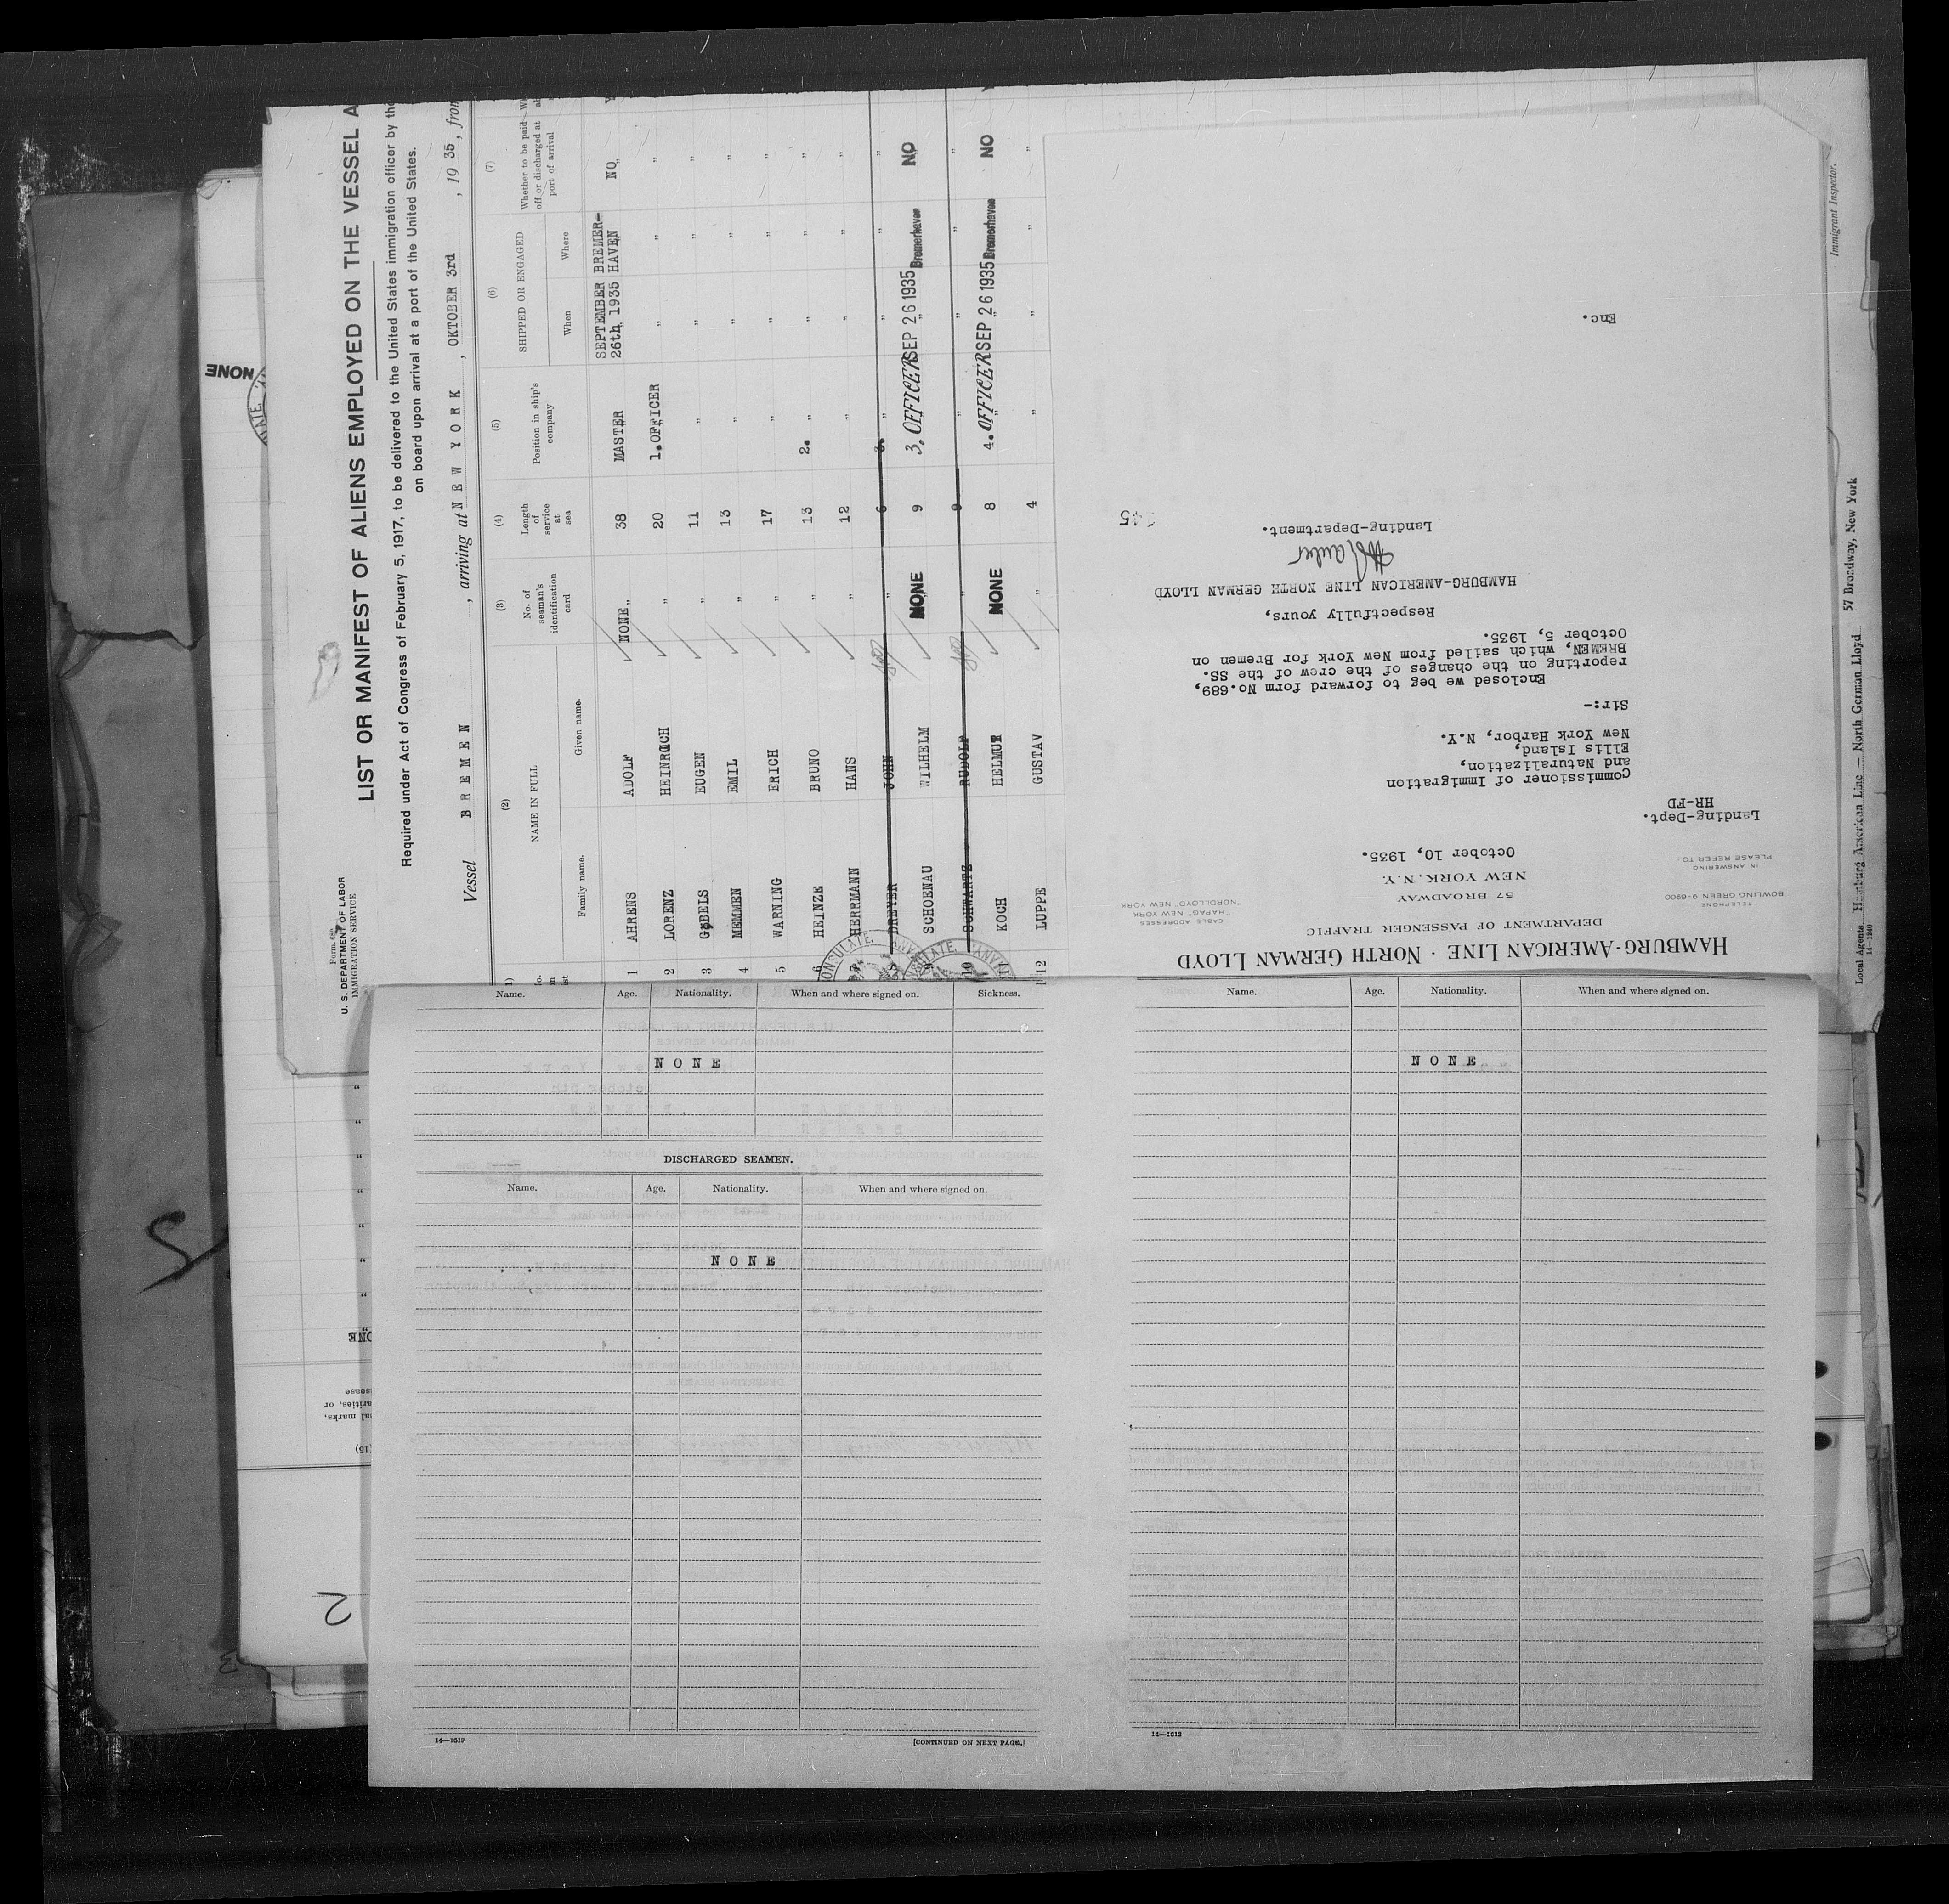 Form 689
U. S. DEPARTMENT OF LABOR
IMMIGRATION SERVICE
LIST OR MANIFEST OF ALIENS EMPLOYED ON THE VESSEL A
Required under Act of Congress of February 5, 1917, to be delivered to the United States immigration officer by the
on board upon arrival at a port of the United States.
Vessel BREMEN , arriving at NEW YORK , OKTOBER 3rd , 1935, from
(2) (3) (4) (5) (6) (7)
NAME IN FULL
Family name. Given name.
No. of seaman's identification card
Length of service at sea
Position in ship's company
SHIPPED OR ENGAGED
When Where
Whether to be paid off or discharged at port of arrival
1 AHRENS ADOLF NONE 38 MASTER SEPTEMBER 26th, 1935 BREMER-HAVEN NO
2 LORENZ HEINRICH " 20 1.OFFICER " " "
3 GÖBELS EUGEN " 11 " " " "
4 MEMMEN EMIL " 13 " " " "
5 WARNING ERICH " 17 " " " "
6 HEINZE BRUNO " 13 2. " " " "
7 HERRMANN HANS " 12 " " " "
8 DREYER JOHN " 6 3. " " " "
9 SCHOENAU WILHELM NONE 9 3. OFFICER SEP 26 1935 Bremerhaven NO
10 SCHWARTZ RUDOLF " 9 " " " "
11 KOCH HELMUT NONE 8 4. OFFICER SEP 26 1935 Bremerhaven NO
12 LUPPE GUSTAV " 4 " " " "
HAMBURG-AMERICAN LINE · NORTH GERMAN LLOYD
DEPARTMENT OF PASSENGER TRAFFIC
57 BROADWAY
NEW YORK, N.Y.
TELEPHONE
BOWLING GREEN 9-6900
CABLE ADDRESSES
"HAPAG" NEW YORK
"NORDLLOYD" NEW YORK
IN ANSWERING
PLEASE REFER TO
October 10, 1935.
Landing-Dept.
HR-FD
Commissioner of Immigration
and Naturalization,
Ellis Island,
New York Harbor, N.Y.
Sir:-
Enclosed we beg to forward form No.689,
reporting on the changes of the crew of the SS.
BREMEN, which sailed from New York for Bremen on
October 5, 1935.
Respectfully yours,
HAMBURG-AMERICAN LINE NORTH GERMAN LLOYD
Landing-Department.
Enc.
Immigrant Inspector.
Local Agents Hamburg American Line — North German Lloyd 57 Broadway, New York
14—1240
NONE
Name. Age. Nationality. When and where signed on. Sickness.
NONE
DISCHARGED SEAMEN.
Name. Age. Nationality. When and where signed on.
NONE
14—1613
[CONTINUED ON NEXT PAGE.]
Name. Age. Nationality. When and where signed on.
NONE
14—1613
(15)
2